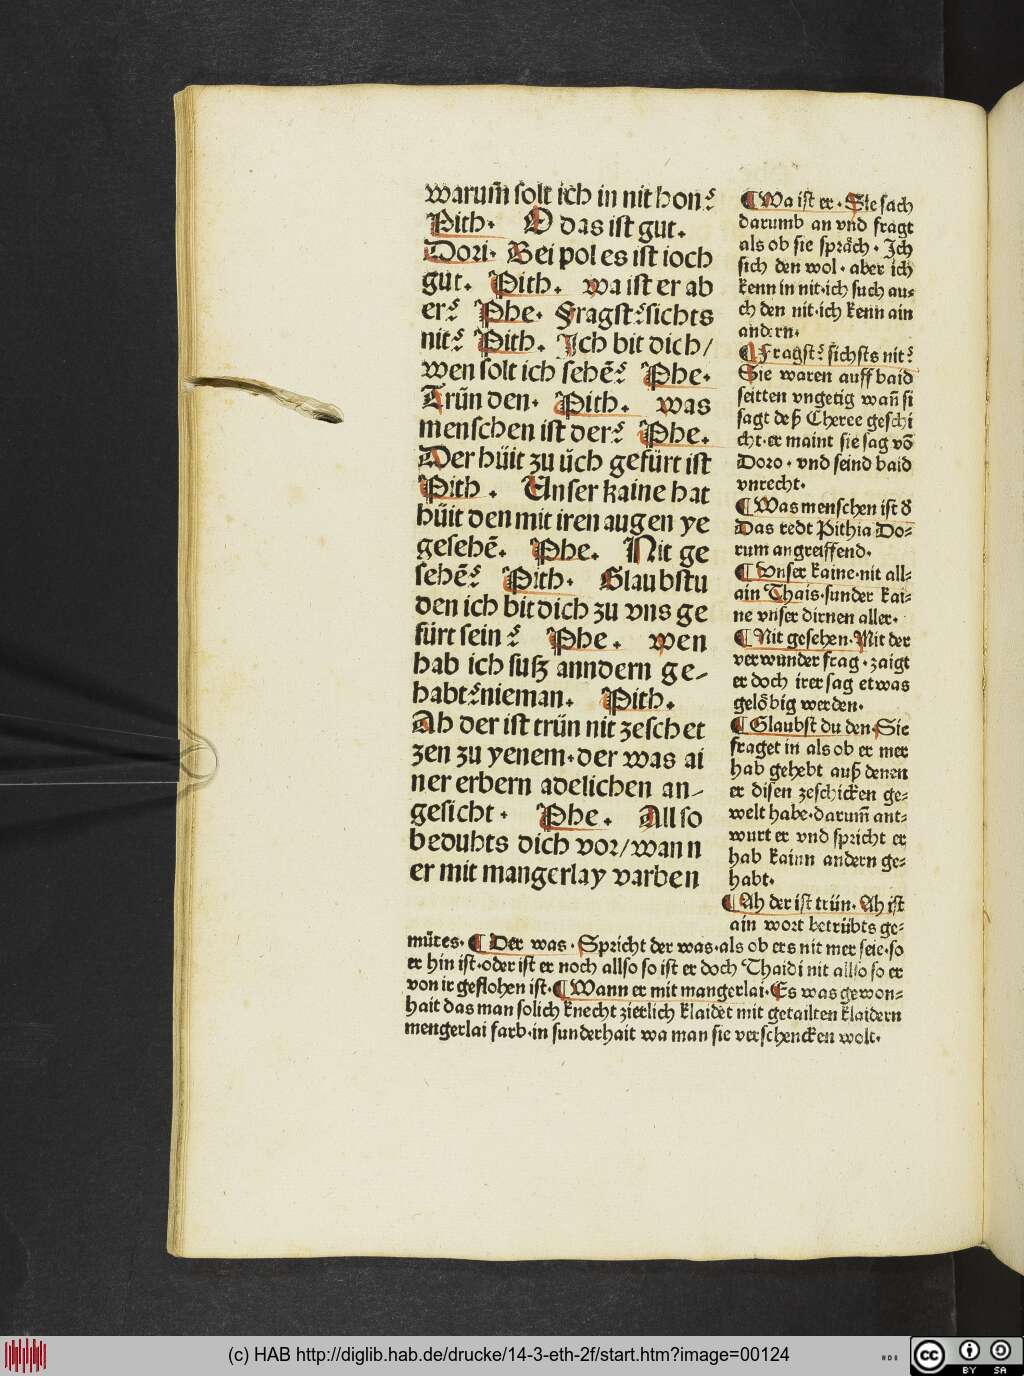 warum̃ solt ich in nit hon?
Pith. O das ist gut.
Dori. Bei pol es ist ioch
gut. Pith. wa ist er ab
er? Phe. Fragst? sichts
nit? Pith. Ich bit dich/
wen solt ich sehē? Phe.
Trün den. Pith. was
menschen ist der? Phe.
Der hüit zu üch gefürt ist
Pith. Unser kaine hat
hüit den mit iren augen ye
gesehē. Phe. Nit ge
sehē? Pith. Glaubstu
den ich bit dich zu vns ge
fürt sein? Phe. wen
hab ich suß anndern ge-
habt? nieman. Pith.
Ah der ist trün nit zeschet
zen zu yenem. der was ai
ner erbern adelichen an-
gesicht. Phe. Allso
beduhts dich vor/wann
er mit mangerlay varben
¶ Wa ist er. Sie sach
darumb an vnd fragt
als ob sie spräch. Ich
sich den wol. aber ich
kenn in nit. ich such au-
ch den nit. ich kenn ain
andern.
¶ Fragst? sichsts nit?
Sie waren auff baid
seitten vngetig wañ si
sagt deß Cheree geschi
cht. er maint sie sag vō
Doro. vnd seind baid
vnrecht.
¶ Was menschen ist d
Das redt Pithia Do-
rum angreiffend.
¶ Vnser kaine. nit all-
ain Thais. sunder kai-
ne vnser dirnen aller.
¶ Nit gesehen. Mit der
verwunder frag. zaigt
er doch irer sag etwas
gelöbig werden.
¶ Glaubst du den. Sie
fraget in als ob er mer
hab gehebt auß denen
er disen zeschicken ge-
welt habe. darum̃ ant-
wurt er vnd spricht er
hab kainn andern ge-
habt.
¶ Ah der ist trün. Ah ist
ain wort betrübts ge-
mütes. ¶ Der was. Spricht der was. als ob ers nit mer seie. so
er hin ist. oder ist er noch allso so ist er doch Thaidi nit allso so er
von ir geflohen ist. ¶ Wann er mit mangerlai. Es was gewon-
hait das man solich knecht zierlich klaidet mit getailten klaidern
mengerlai farb. in sunderhait wa man sie verschencken wolt.
(c) HAB http://diglib.hab.de/drucke/14-3-eth-2f/start.htm?image=00124
cc BY SA